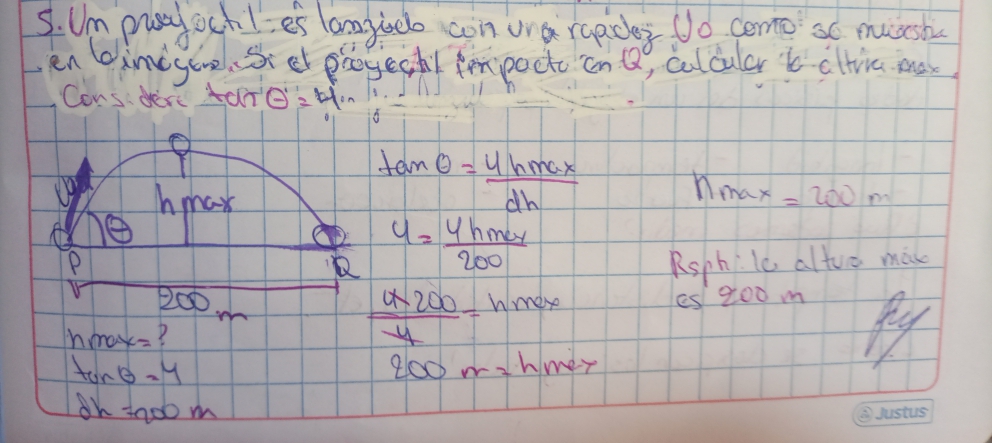 5. Un proyectil es lanzado con una rapidez Vo como se muestra
en la imagen. Si el proyectil impacta en Q, calcular la altura max
Considere tan θ = 4
Vo
hmax
θ
P
Q
200 m
hmax = ?
tan θ = 4
dh = 200 m
tan θ = 4 hmax
dh
4 = 4 hmax
200
4 × 200 = hmax
4
200 m = hmax
hmax = 200 m
Rsph: la altura max
es 200 m
Justus